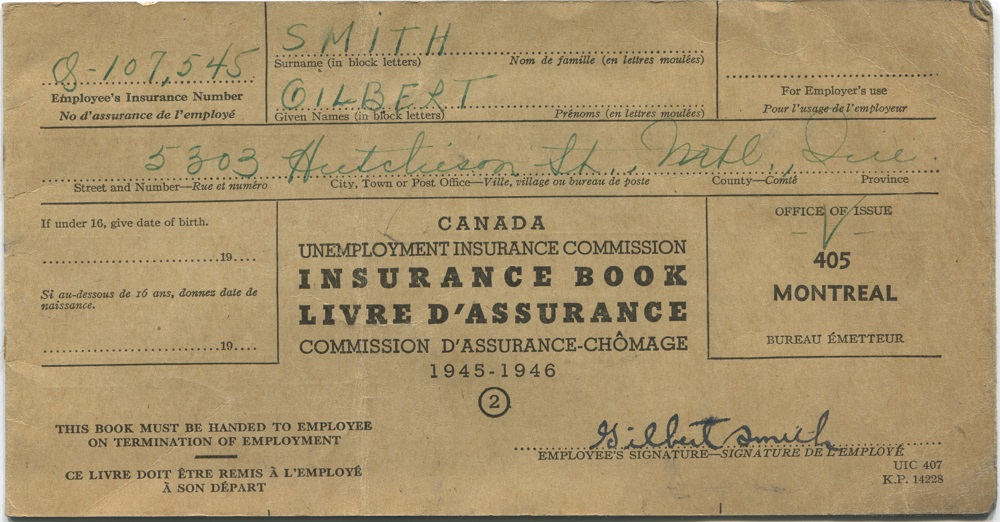 Q-107,545
Employee's Insurance Number
No d'assurance de l'employé
SMITH
Surname (in block letters) Nom de famille (en lettres moulées)
GILBERT
Given Names (in block letters) Prénoms (en lettres moulées)
For Employer's use
Pour l'usage de l'employeur
5303 Hutchison St., Mtl., Que.
Street and Number—Rue et numéro City, Town or Post Office—Ville, village ou bureau de poste County—Comté Province
If under 16, give date of birth.
19
Si au-dessous de 16 ans, donnez date de
naissance.
19
CANADA
UNEMPLOYMENT INSURANCE COMMISSION
INSURANCE BOOK
LIVRE D'ASSURANCE
COMMISSION D'ASSURANCE-CHÔMAGE
1945-1946
2
OFFICE OF ISSUE
405
MONTREAL
BUREAU ÉMETTEUR
THIS BOOK MUST BE HANDED TO EMPLOYEE
ON TERMINATION OF EMPLOYMENT
CE LIVRE DOIT ÊTRE REMIS À L'EMPLOYÉ
À SON DÉPART
Gilbert Smith
EMPLOYEE'S SIGNATURE—SIGNATURE DE L'EMPLOYÉ
UIC 407
K.P. 14228